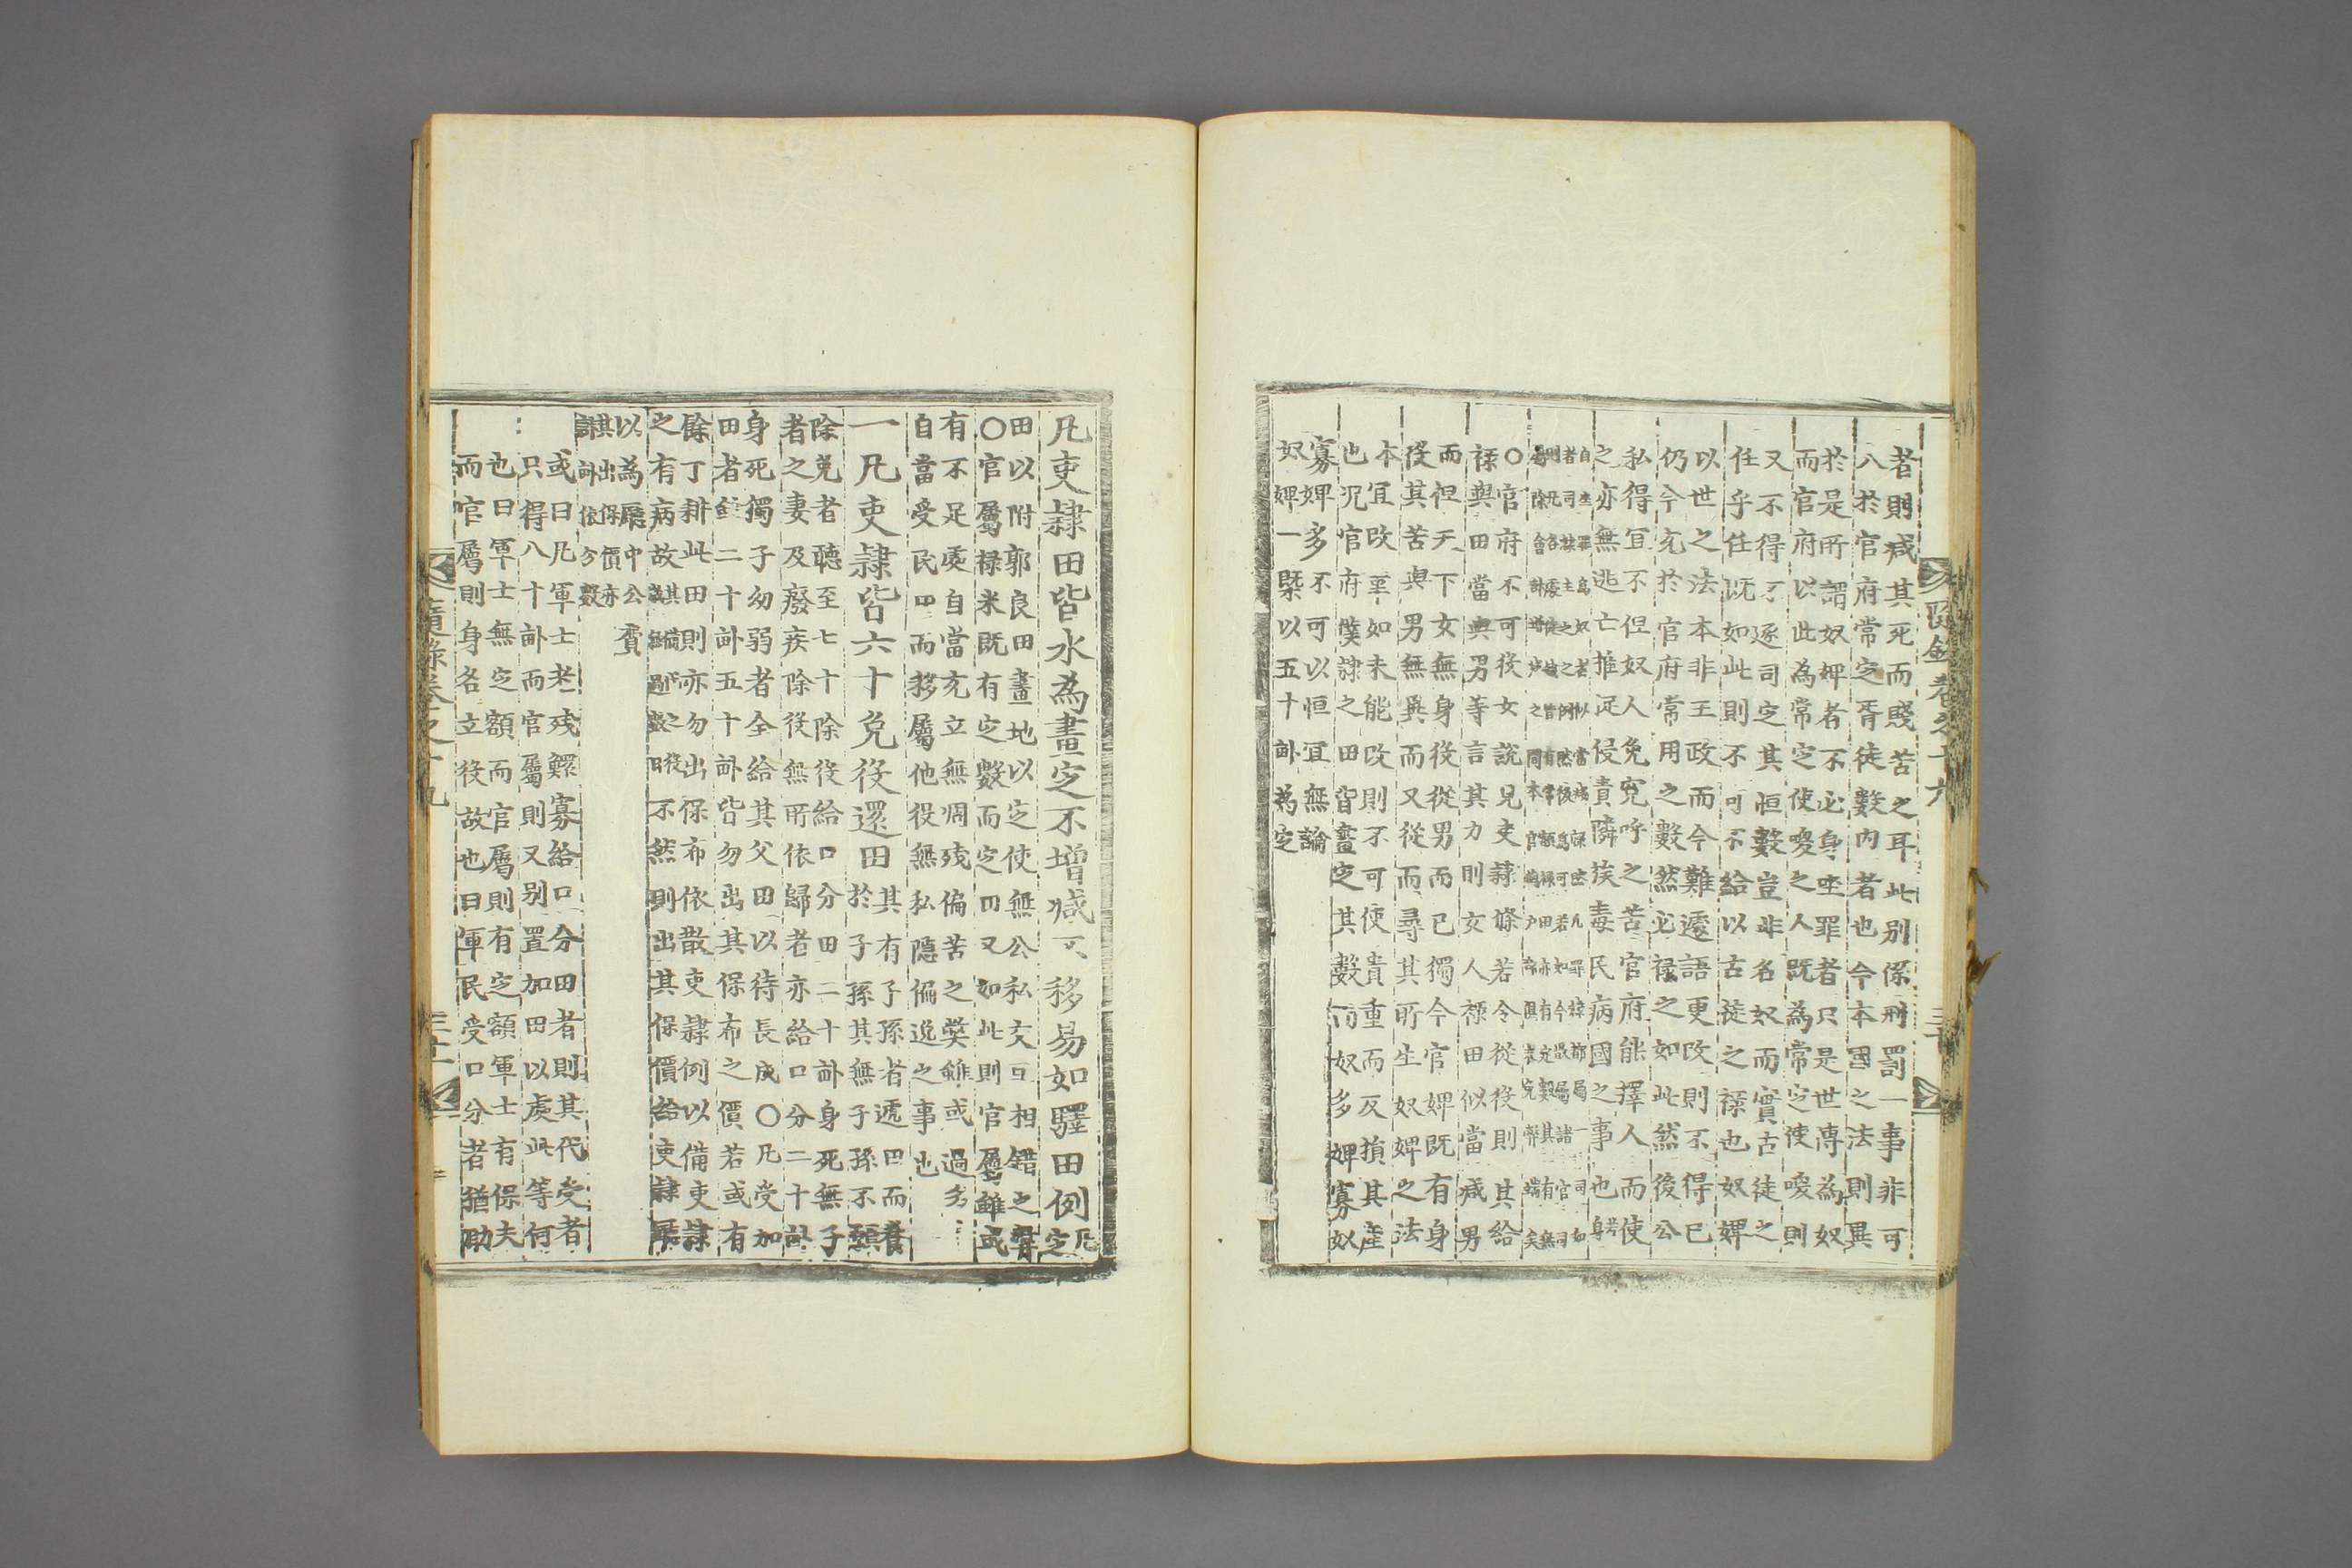 者則減其死而賤苦之耳此別係刑罰一事非可
八於官府常定胥徒數內者也今本國之法則異
於是所謂奴婢者不必身坐罪者只是世傳為奴
而官府以此為常定使喚之人既為常定使喚則
又不得不逐司定其恒數豈非名奴而實古徒之
任乎任既如此則不可不給以古徒之祿也奴婢
以世之法本非王政而今難遽語更改則不得已
仍今充於官府常用之數然必祿之如此然後公
私得宜不但奴人免寃呼之苦官府能擇人而使
之亦無逃亡推足侵責隣族毒民病國之事也
○官府不可役女說見吏隷條若令從役則其給
祿與田當與男等言其力則女人祿田似當減男
而但天下女無身役從男而已獨今官婢既有身
役其苦與男無異而又從而尋其所生奴婢之法
本宜改革如未能改則不可使貴重而反損其產
也况官府僕隷之田皆畫定其數而奴多婢寡奴
寡婢多不可以恒宜無論
奴婢一槩以五十畝為定
凡吏隷田皆永為畫定不增減不移易如驛田例 凡定
田以附郭良田畫地以定使無公私交互相錯之
○官屬祿米既有定數而定田又如此則官屬雖或
有不足處自當充立無凋殘偏苦之獘雖或過多
自當受民田而移屬他役無私隱偏逸之事也
一凡吏隷皆六十免役還田 其有子孫者遞田而
於子孫其無子孫不
除免者聽至七十除役給口分田二十畝身死無子
者之妻及廢疾除役無所依歸者亦給口分二十畝
身死獨子幼弱者全給其父田以待長成○凡受加
田者雖二十畝五十畝皆勿出其保布之價若或有
餘丁耕此田則亦勿出保布依散吏隷例以備吏隷
之有病故 不然則出其保價給吏隷
以為 中公費
其出保價亦
計畝依分數
或曰凡軍士老殘鰥寡給口分田者則其代受者
只得八十畝而官屬則又別置加田以處此等何
也曰軍士無定額而官屬則有定額軍士有保夫
而官屬則身各立役故也曰軍民受口分者猶助
隨錄卷之十九